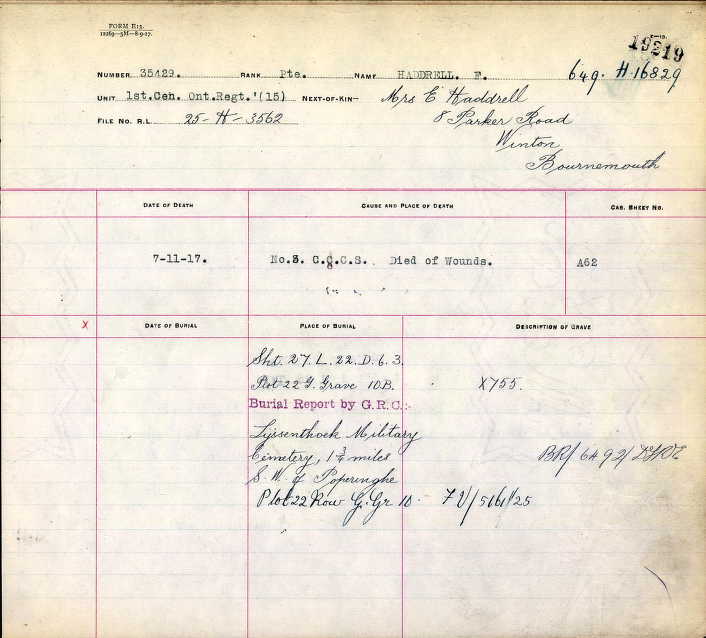 FORM R13.
12269—5M—8-9-17.
19219
NUMBER 35429. RANK Pte. NAME HADDRELL. F. 649. H-16829
UNIT 1st.Cen. Ont.Regt.'(15) NEXT-OF-KIN— Mrs E Haddrell
FILE NO. R.L. 25-H-3562 8 Parker Road
Winton
Bournemouth
DATE OF DEATH CAUSE AND PLACE OF DEATH CAS. SHEET NO.
7-11-17. No.3. C.C.C.S. Died of Wounds. A62
X DATE OF BURIAL PLACE OF BURIAL DESCRIPTION OF GRAVE
Sht. 27. L. 22. D. 6. 3.
Plot 22 G. Grave 10.B. X755.
Burial Report by G.R.C.:-
Lijssenthoek Military
Cemetery, 1 3/4 miles BR/6492/
S. W. of Poperinghe
Plot 22 Row G. Gr 10.